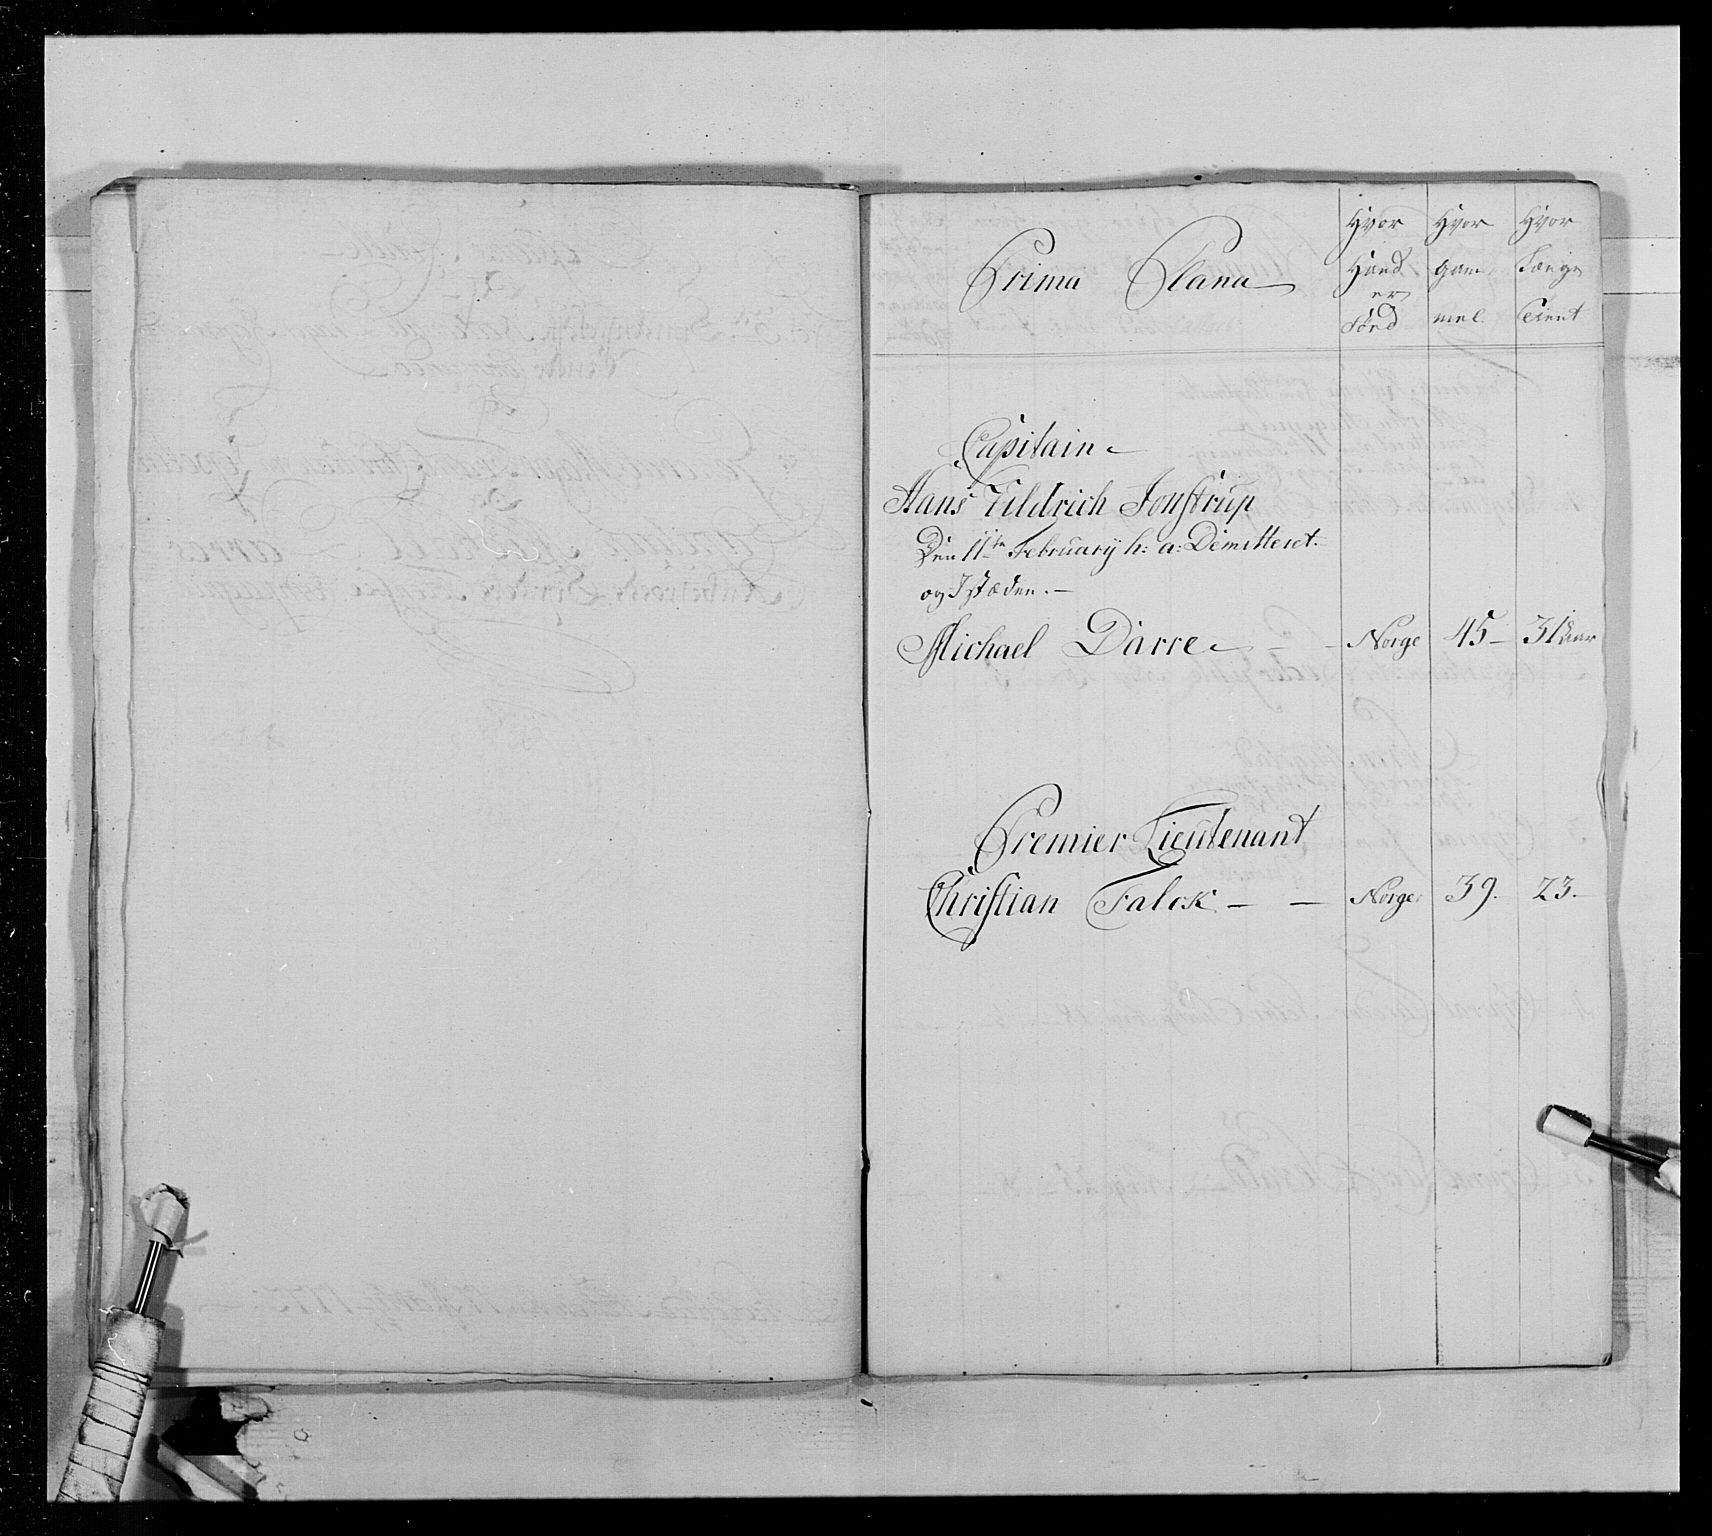 Prima Plana
Hvor Hvor Hvor
Hand gam Længe
er
Fönd mel. Tient
Capitain
Hans Uldrich Jonstrup
Den 11te February h: a: Dimitteret
og Istæden.
Michael Darre Norge 45 31 Aar
Premier Lieutenant
Christian Falck Norge 39. 23.